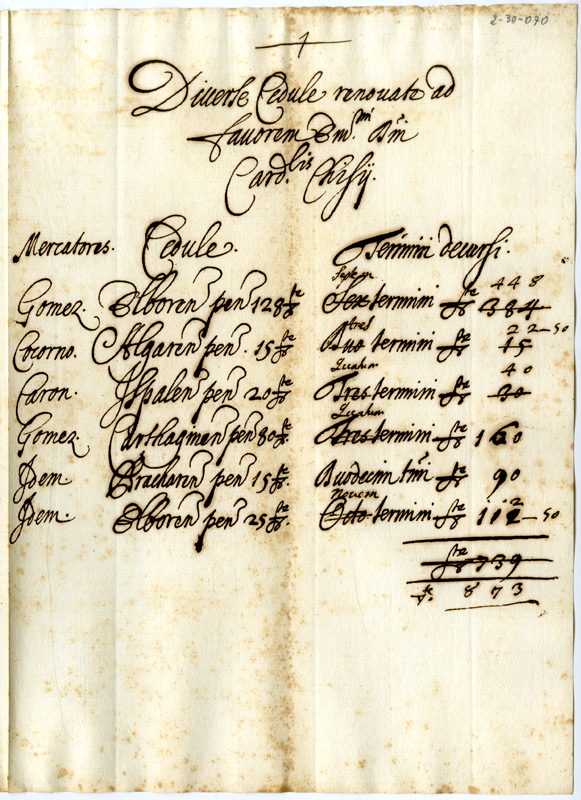 2-30-070
1
Diverse Cedule renovate ad
favorem Em.mi Dni
Card.lis Chisij.
Mercatores. Cedule. Termini decursi.
Septem 448
Gomez. Elboren pen 128 Sex termini 384
tres 22-50
Cocorno. Algaren pen. 15 Duo termini 15
40
Caron. Ispalen pen 20 Tres termini 30
Gomez. Carthaginen pen 80 Tres termini 160
Idem. Bracharen pen 15 Duodecim tni 90
Novem
Idem. Elboren pen 25 Octo termini 112-50
739
873